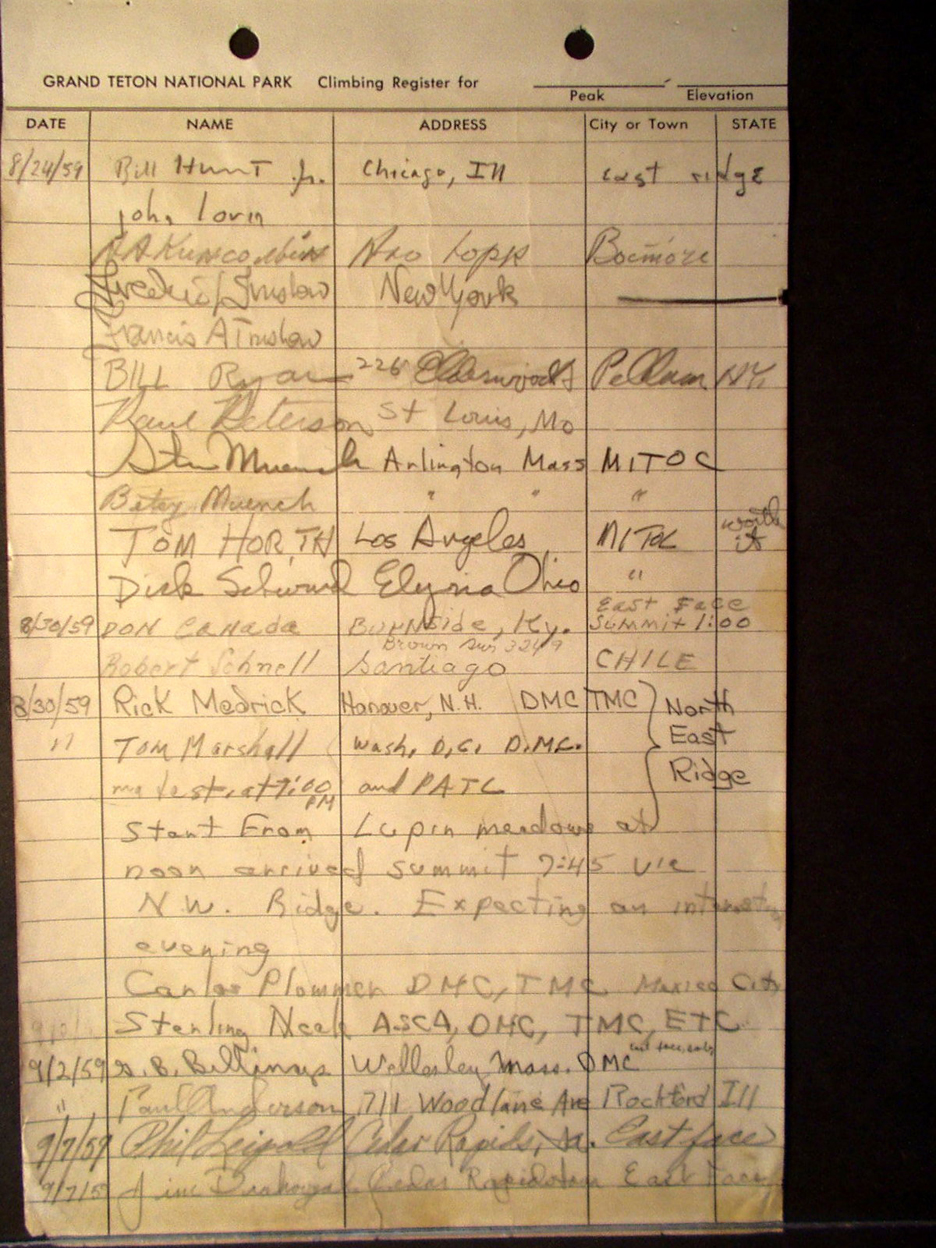 GRAND TETON NATIONAL PARK Climbing Register for
Peak Elevation
DATE NAME ADDRESS City or Town STATE
8/24/59 Bill Hunt Jr. Chicago, Ill east ridge
John
New York
Francis A
BILL Ryan 226 Pelham NY.
Paul Peterson St Louis, Mo
Stan Muench Arlington Mass MITOC
Betsy Muench " " "
TOM HO Los Angeles MITOC worth it
Dick Elyria Ohio "
East Face
8/30/59 DON CANADA BURNSide, Ky. Summit 1:00
Robert Schnell Santiago CHILE
8/30/59 Rick Medrick Hanover, N.H. DMC TMC North
" Tom Marshall Wash, D.C. D.M.C. East
7:00 PM and PATC Ridge
Start From Lupin meadows at
noon arrived summit 7:45 via
N.W. Ridge. Expecting an
evening
Carlos Plommer DMC, TMC Mexico City
Sterling Neale ASCA, DMC, TMC, ETC
9/2/59 B. Billings Wellesley, Mass. DMC
" Paul Anderson, 711 Woodlane Ave Rockford Ill
9/7/59 Phil Leipold Cedar Rapids, Ia. East face
9/7/5 Jim Cedar Rapids East Face